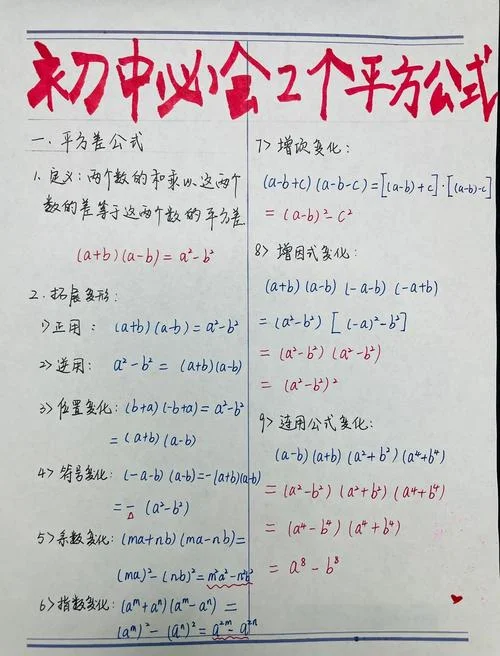 初中必会2个平方公式
一、平方差公式
1、定义:两个数的和乘以这两个
数的差等于这两个数的平方差.
(a+b)(a-b)=a²-b²
2、拓展变形:
1>正用: (a+b)(a-b)=a²-b²
2>逆用: a²-b²=(a+b)(a-b)
3>位置变化:(b+a)(-b+a)=a²-b²
=(a+b)(a-b)
4>符号变化:(-a-b)(a-b)=-(a+b)(a-b)
=-(a²-b²)
5>系数变化:(ma+nb)(ma-nb)=
(ma)²-(nb)²=m²a²-n²b²
6>指数变化:(aᵐ+aⁿ)(aᵐ-aⁿ)=
(aᵐ)²-(aⁿ)²=a²ᵐ-a²ⁿ
7>增项变化:
(a-b+c)(a-b-c)=[(a-b)+c]·[(a-b)-c]
=(a-b)²-c²
8>增因式变化:
(a+b)(a-b)(-a-b)(-a+b)
=(a²-b²)[(-a)²-b²]
=(a²-b²)(a²-b²)
=(a²-b²)²
9>连用公式变化:
(a-b)(a+b)(a²+b²)(a⁴+b⁴)
=(a²-b²)(a²+b²)(a⁴+b⁴)
=(a⁴-b⁴)(a⁴+b⁴)
=a⁸-b⁸